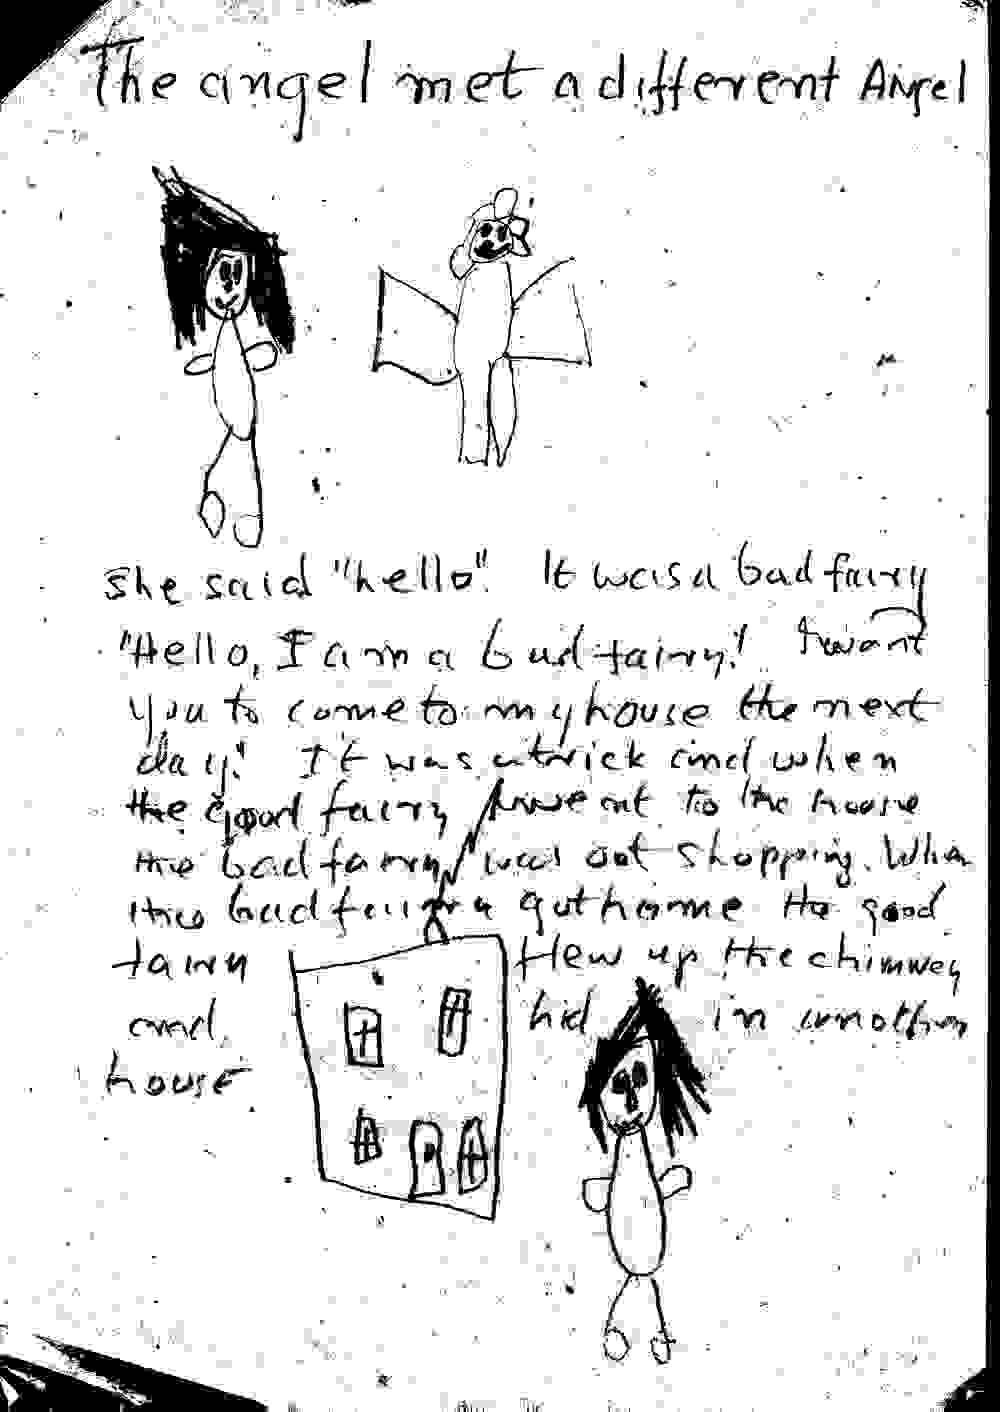 The angel met a different Angel
she said "hello". It was a bad fairy
"Hello, I am a bad fairy." I want
you to come to my house the next
day." It was a trick and when
the good fairy went to the house
the bad fairy was out shopping. When
the bad fairy got home the good
fairy flew up the chimney
and hid in another
house